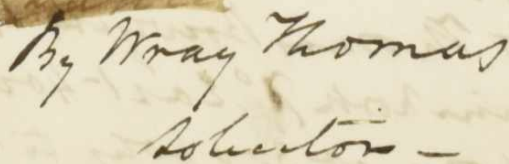 By Wray Thomas
Solicitor –